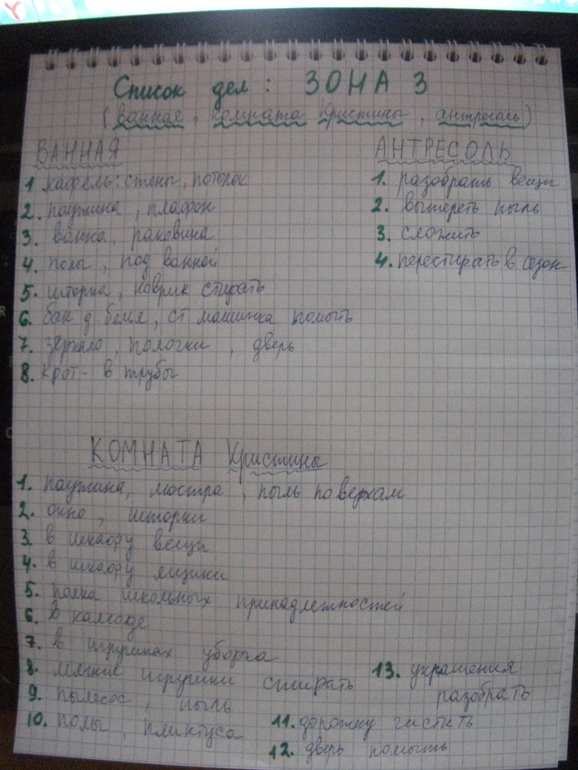 Список дел: ЗОНА 3
(ванная, комната Кристины, антресоль)
ВАННАЯ
1. кафель: стены, потолок
2. паутина, плафон
3. ванна, раковина
4. полы, под ванной
5. шторка, коврик стирать
6. бак д. белья, ст. машинка помыть
7. зеркало, полочки, дверь
8. крот - в трубы
АНТРЕСОЛЬ
1. разобрать вещи
2. вытереть пыль
3. сложить
4. перестирать в сезон
КОМНАТА Кристины
1. паутина, люстра, пыль по верхам
2. окно, шторки
3. в шкафу вещи
4. в шкафу ящики
5. полка школьных принадлежностей
6. в комоде
7. в игрушках уборка
8. мягкие игрушки стирать
9. пылесос, пыль
10. полы, плинтуса
11. дорожку чистить
12. дверь помыть
13. украшения
разобрать